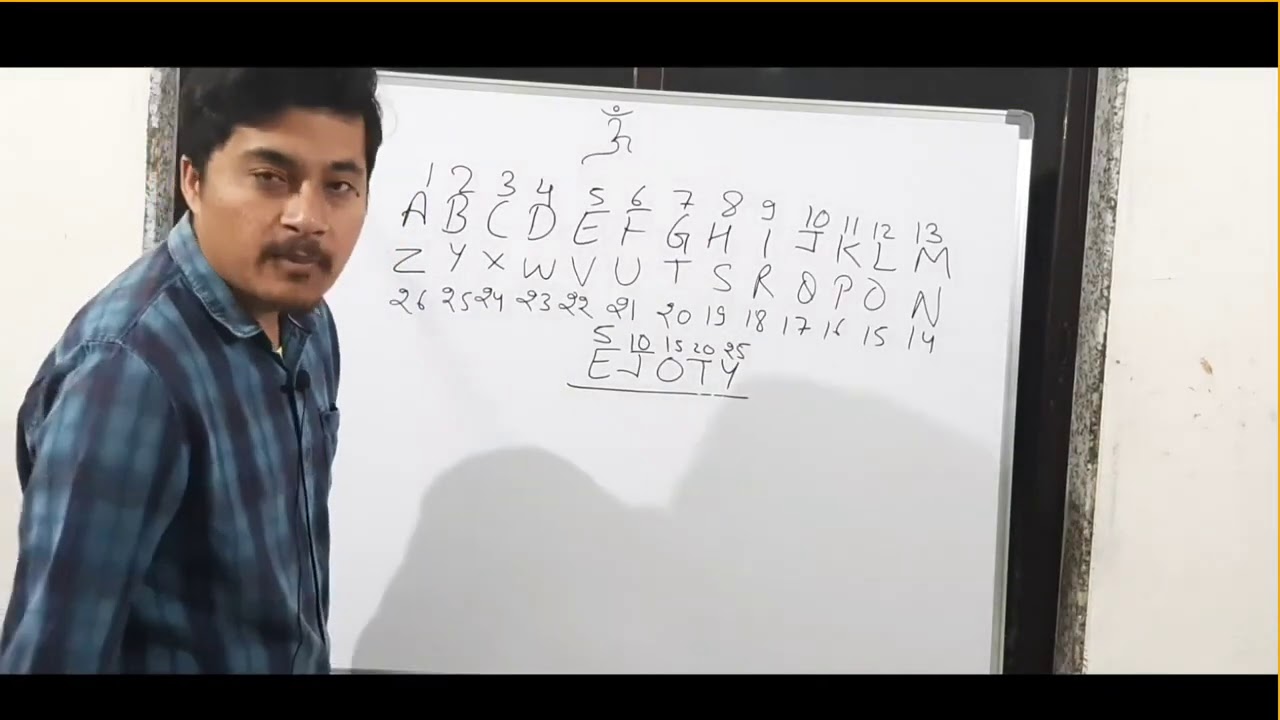 ॐ
1 2 3 4 5 6 7 8 9 10 11 12 13
A B C D E F G H I J K L M
Z Y X W V U T S R Q P O N
26 25 24 23 22 21 20 19 18 17 16 15 14
5 10 15 20 25
E J O T Y